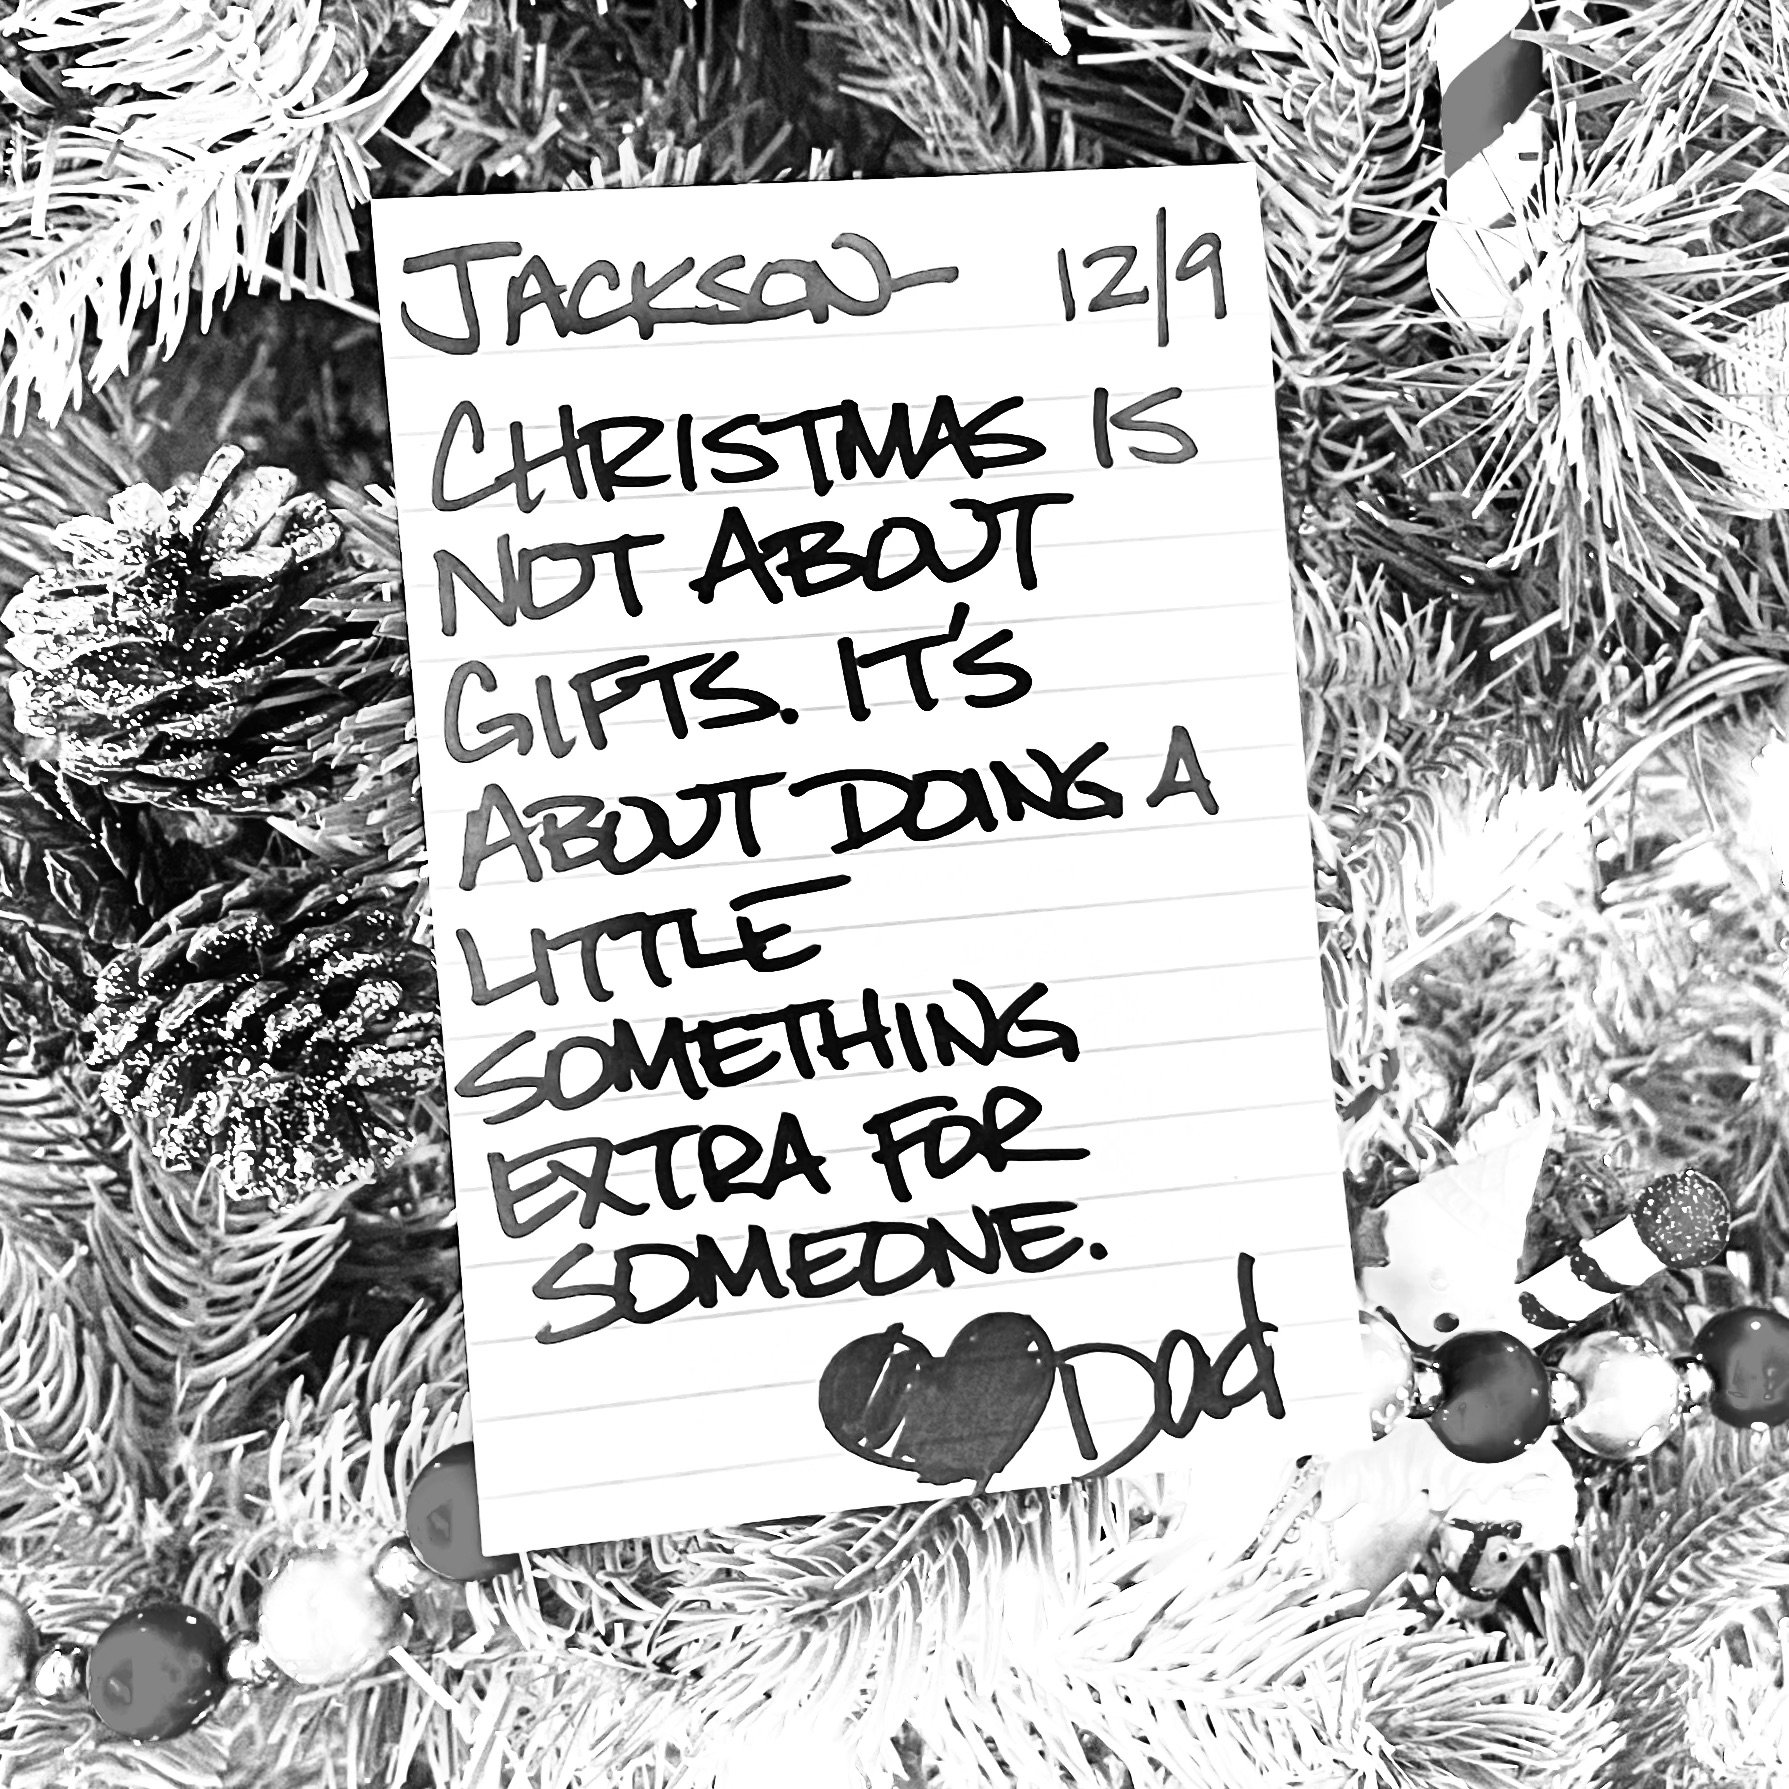 JACKSON- 12/9
CHRISTMAS IS
NOT ABOUT
GIFTS. IT'S
ABOUT DOING A
LITTLE
SOMETHING
EXTRA FOR
SOMEONE.
Dad